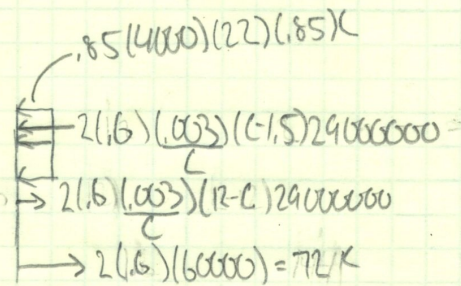 .85(4000)(22)(.85)C
2(.6)(.003)(C-1.5)29000000
C
2(.6)(.003)(12-C)29000000
C
2(.6)(60000)=72K